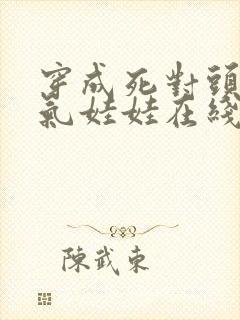 穿成死對頭
氣娃娃在綫
陳武東